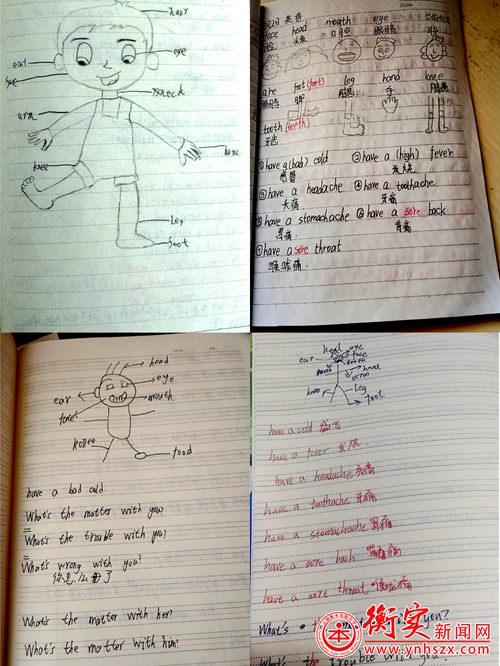 hair
eye
ear
neck
arm
knee
Leg
foot
Date
face head mouth eye ear
脸 头 口腔 眼睛
foot (feet) leg hand knee
脚 腿 手 膝盖
tooth (teeth)
牙齿
①have a (bad) cold ②have a (high) fever
感冒 发烧
③have a headache ④have a toothache
头痛 牙痛
⑤have a stomachache ⑥have a sore back
胃痛 背痛
⑦have a sore throat
喉咙痛
head
eye
ear
mouth
food
have a bad cold
What's the matter with you?
What's the trouble with you?
What's wrong with you?
你怎么了
What's the matter with her?
What's the matter with him?
head eye
ear face
hand
arm
knee Leg
foot
have a cold 感冒
have a fever 发烧
have a headache 头痛
have a toothache 牙痛
have a stomachache 胃痛
have a sore bach 背痛
have a sore throat 喉咙痛
What's
you?
trouble with you
衡实新闻网
www.ynhszx.com